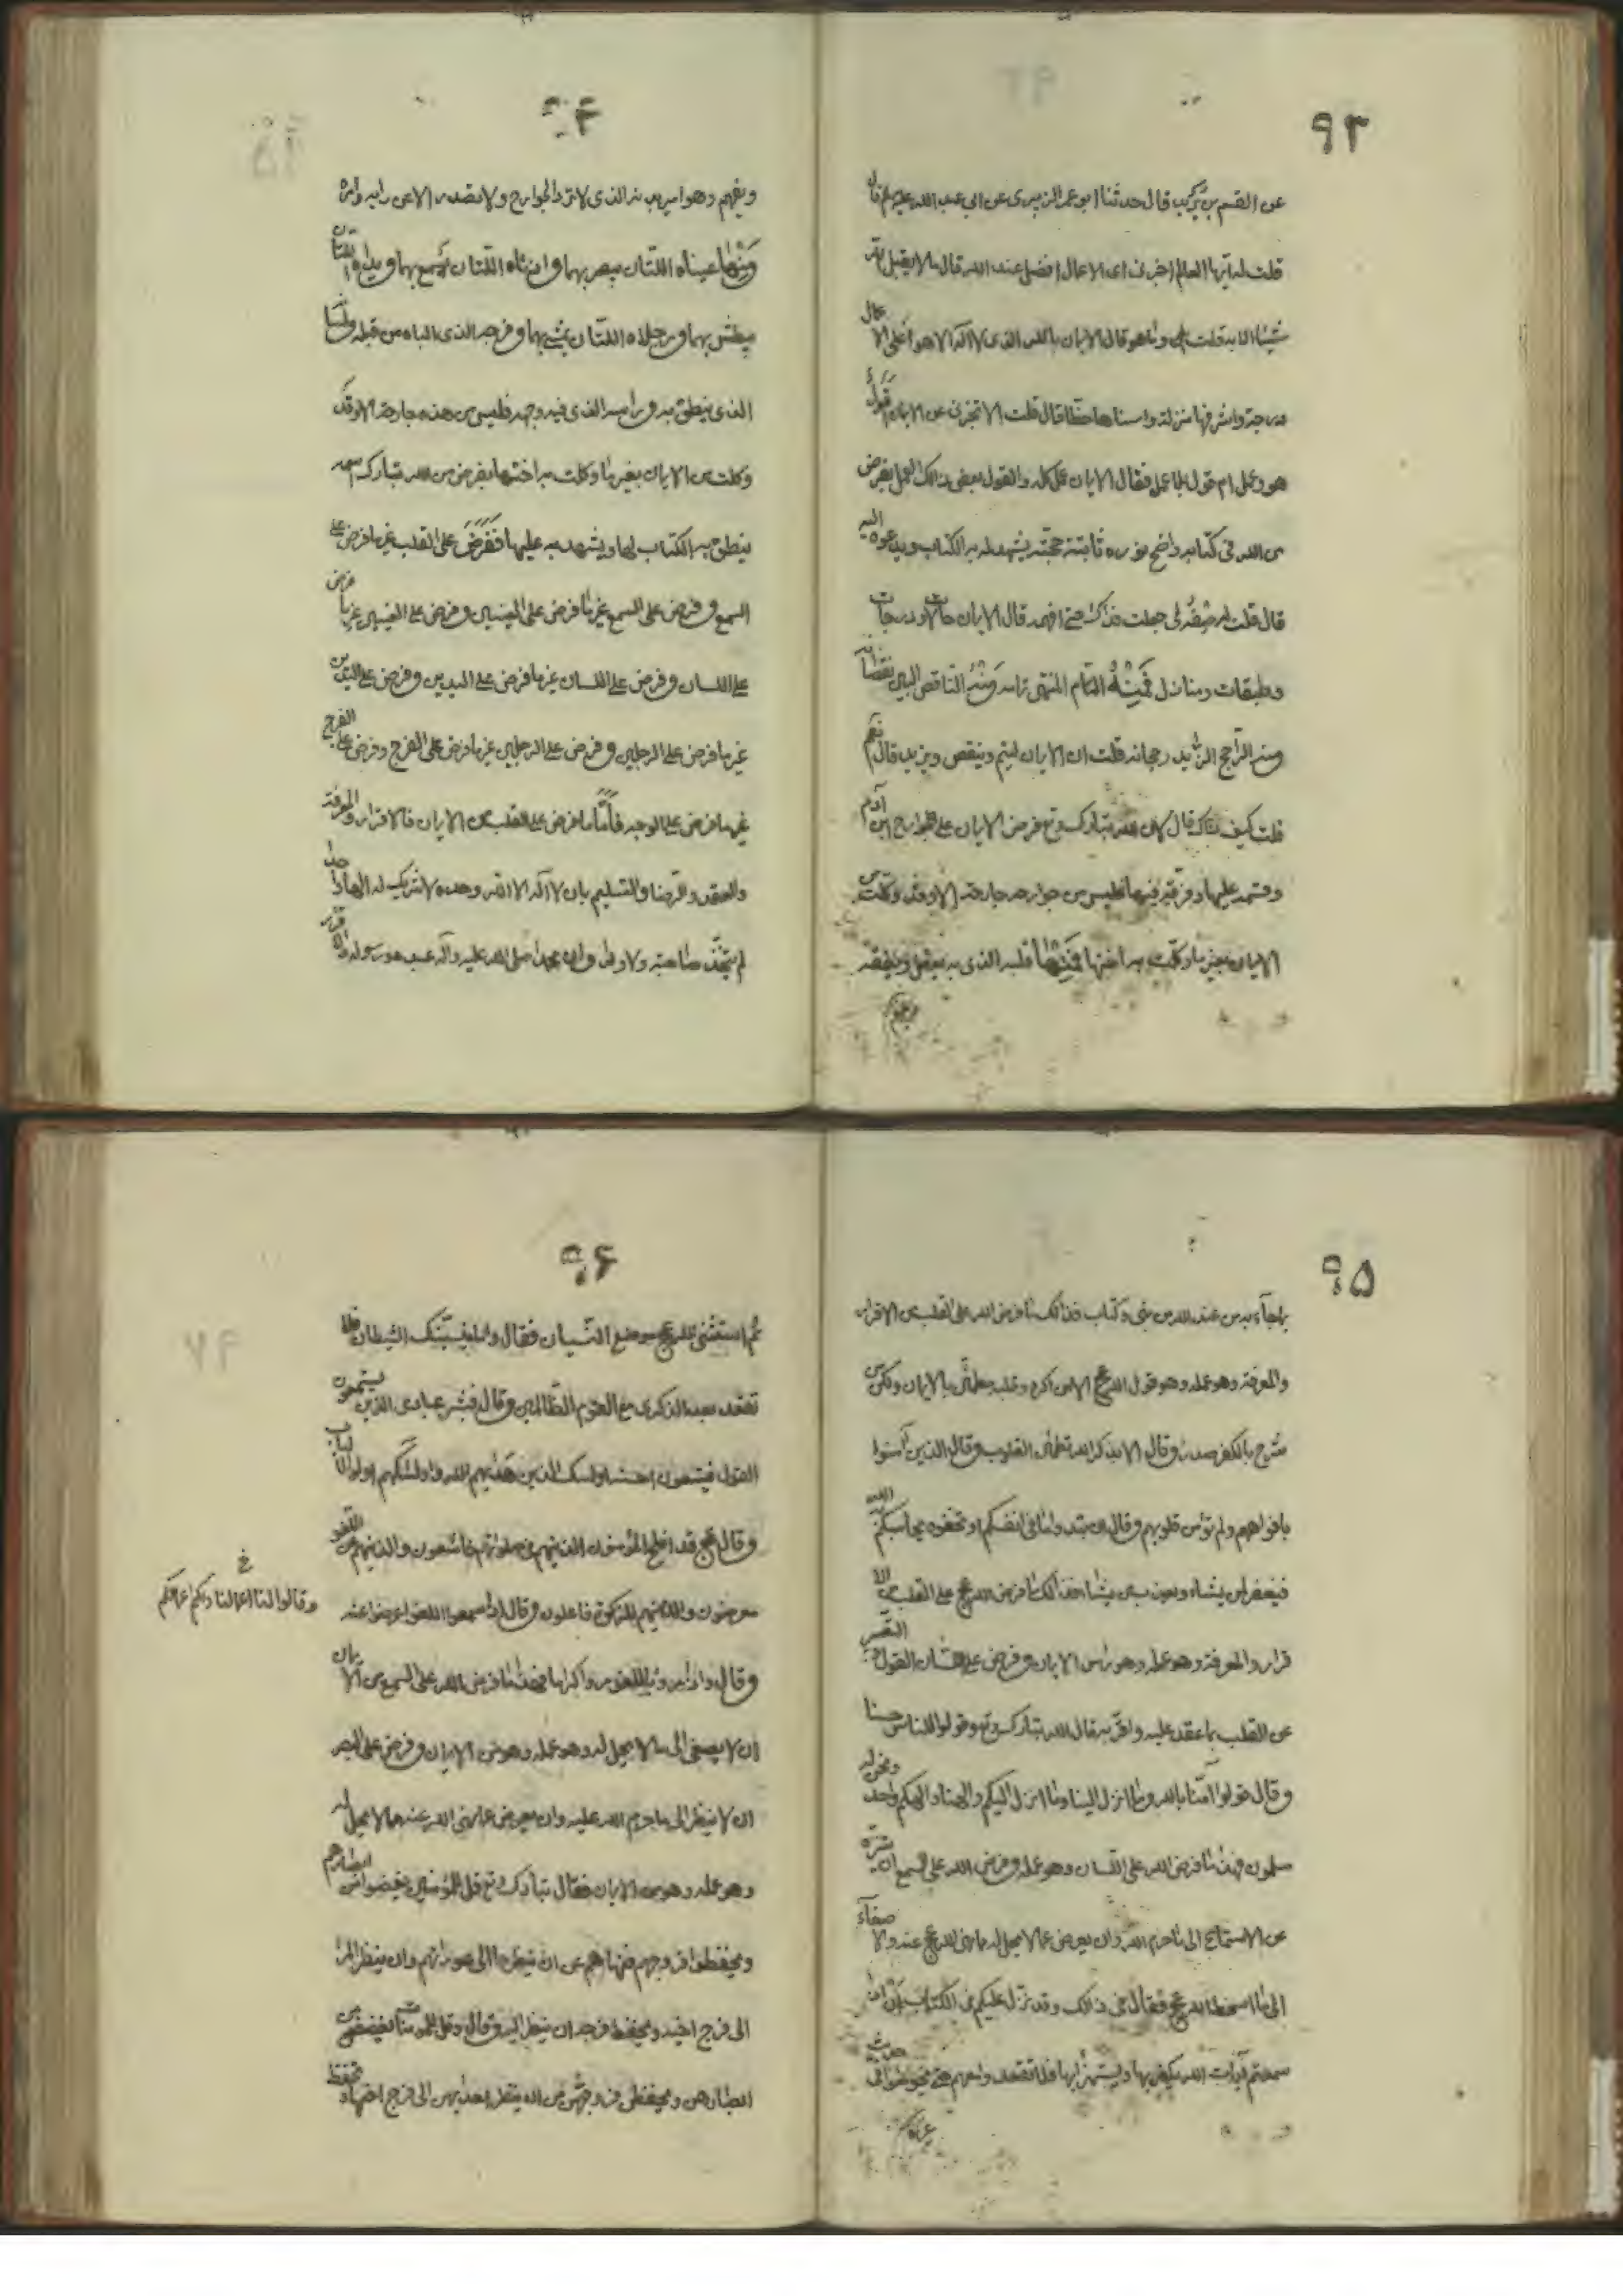 ۹۳
عن القسم بن بريد قال حدثنا ابو عمر الزبيرى عن ابى عبد الله عليه السلم قال
قلت له ايها العالم اخبرنى اى الاعمال افضل عند الله قال ما لا يقبل الله
شيئا الا به قلت وما هو قال الايمان بالله الذى لا اله الا هو اعلى الاعمال
درجة واشرفها منزلة واسناها حظا قال قلت الا تخبرنى عن الايمان اقول
هو وعمل ام قول بلا عمل فقال الايمان عمل كله والقول بعض ذلك العمل بفرض
من الله فى كتابه واضح نوره ثابتة حجته يشهد له به الكتاب ويدعوه اليه
قال قلت له صفه لى جعلت فداك حتى افهمه قال الايمان حالات ودرجات
وطبقات ومنازل فَمِنْهُ التام المنتهى تمامه وَمِنْهُ الناقص البين نقصانه
ومنه الراجح الزائد رجحانه قلت ان الايمان ليتم وينقص ويزيد قال نعم
قلت كيف ذلك قال لان الله تبارك وتع فرض الايمان على جوارح ابن آدم
وقسمه عليها وفرقه فيها فليس من جوارحه جارحة الا وقد وكلت من
الايمان بغير ما وكلت به اختها فَمِنْهَا قلبه الذى به يعقل ويفقه
ويفهم
۹۴
ويفهم وهو امير بدنه الذى لا ترد الجوارح ولا تصدر الا عن رايه وامره
وَمِنْهَا عيناه اللتان يبصر بهما واذناه اللتان يسمع بهما ويداه اللتان
يبطش بهما ورجلاه اللتان يمشى بهما وفرجه الذى الباه من قبله ولسانه
الذى ينطق به وراسه الذى فيه وجهه فليس من هذه جارحة الا وقد
وكلت من الايمان بغير ما وكلت به اختها بفرض من الله تبارك اسمه
ينطق به الكتاب لها ويشهد به عليها فَفَرَضَ على القلب غير ما فرض على
السمع وفرض على السمع غير ما فرض على العينين وفرض على العينين غير ما فرض
على اللسان وفرض على اللسان غير ما فرض على اليدين وفرض على اليدين
غير ما فرض على الرجلين وفرض على الرجلين غير ما فرض على الفرج وفرض على الفرج
غير ما فرض على الوجه فَأَمَّا ما فرض على القلب من الايمان فالاقرار والمعرفة
والعقد والرضا والتسليم بان لا اله الا الله وحده لا شريك له الها واحدا
لم يتخذ صاحبة ولا ولدا وان محمدا صلى الله عليه وآله عبده ورسوله والاقرار
۹۵
بما جآء به من عند الله من نبى وكتاب فذلك ما فرض الله على القلب من الاقرار
والمعرفة وهو عمله وهو قول الله عج الا من اكره وقلبه مطمئن بالايمان ولكن من
شرح بالكفر صدرا وقال الا بذكر الله تطمئن القلوب وقال الذين آمنوا
بافواههم ولم تؤمن قلوبهم وقال ان تبدوا ما فى انفسكم او تخفوه يحاسبكم به الله
فيغفر لمن يشاء ويعذب من يشاء فذلك ما فرض الله عج على القلب من الا
قرار والمعرفة وهو عمله وهو راس الايمان وفرض على اللسان القول والتعبير
عن القلب بما عقد عليه واقر به قال الله تبارك وتع وقولوا للناس حسنا
وقال قولوا آمنا بالله وما انزل الينا وما انزل اليكم والهنا والهكم واحد ونحن له
مسلمون فهذا ما فرض الله على اللسان وهو عمله وفرض الله على السمع ان يتنزه
عن الاستماع الى ما حرم الله وان يعرض عما لا يحل له مما نهى الله عج عنه والاصغآء
الى ما اسخط الله عج فقال فى ذلك وقد نزل عليكم فى الكتاب اَنْ اذا
سمعتم آيات الله يكفر بها ويستهزأ بها فلا تقعدوا معهم حتى يخوضوا فى حديث
غيره
۹۶
ثم استثنى الله عج موضع النسيان فقال واما ينسينك الشيطان فلا
تقعد بعد الذكرى مع القوم الظالمين وقال فبشر عبادى الذين يستمعون
القول فيتبعون احسنه اولئك الذين هديهم الله واولئك هم اولوا الالباب
وقال عج قد افلح المؤمنون الذينهم فى صلوتهم خاشعون والذينهم عن اللغو
معرضون والذينهم للزكوة فاعلون وقال اذا سمعوا اللغو اعرضوا عنه
وقالوا لنا اعمالنا ولكم اعمالكم
وقال واذا مروا باللغو مروا كراما فهذا ما فرض الله على السمع من الايمان
ان لا يصغى الى ما لا يحل له وهو عمله وهو من الايمان وفرض على البصر
ان لا ينظر الى ما حرم الله عليه وان يعرض عما نهى الله عنه مما لا يحل له
وهو عمله وهو من الايمان فقال تبارك وتع قل للمؤمنين يغضوا من ابصارهم
ويحفظوا فروجهم فنهاهم عن ان ينظروا الى عوراتهم وان ينظر المرء
الى فرج اخيه ويحفظ فرجه ان ينظر اليه وقال وقل للمؤمنات يغضضن من
ابصارهن ويحفظن فروجهن من ان ينظر احديهن الى فرج اختها وتحفظ